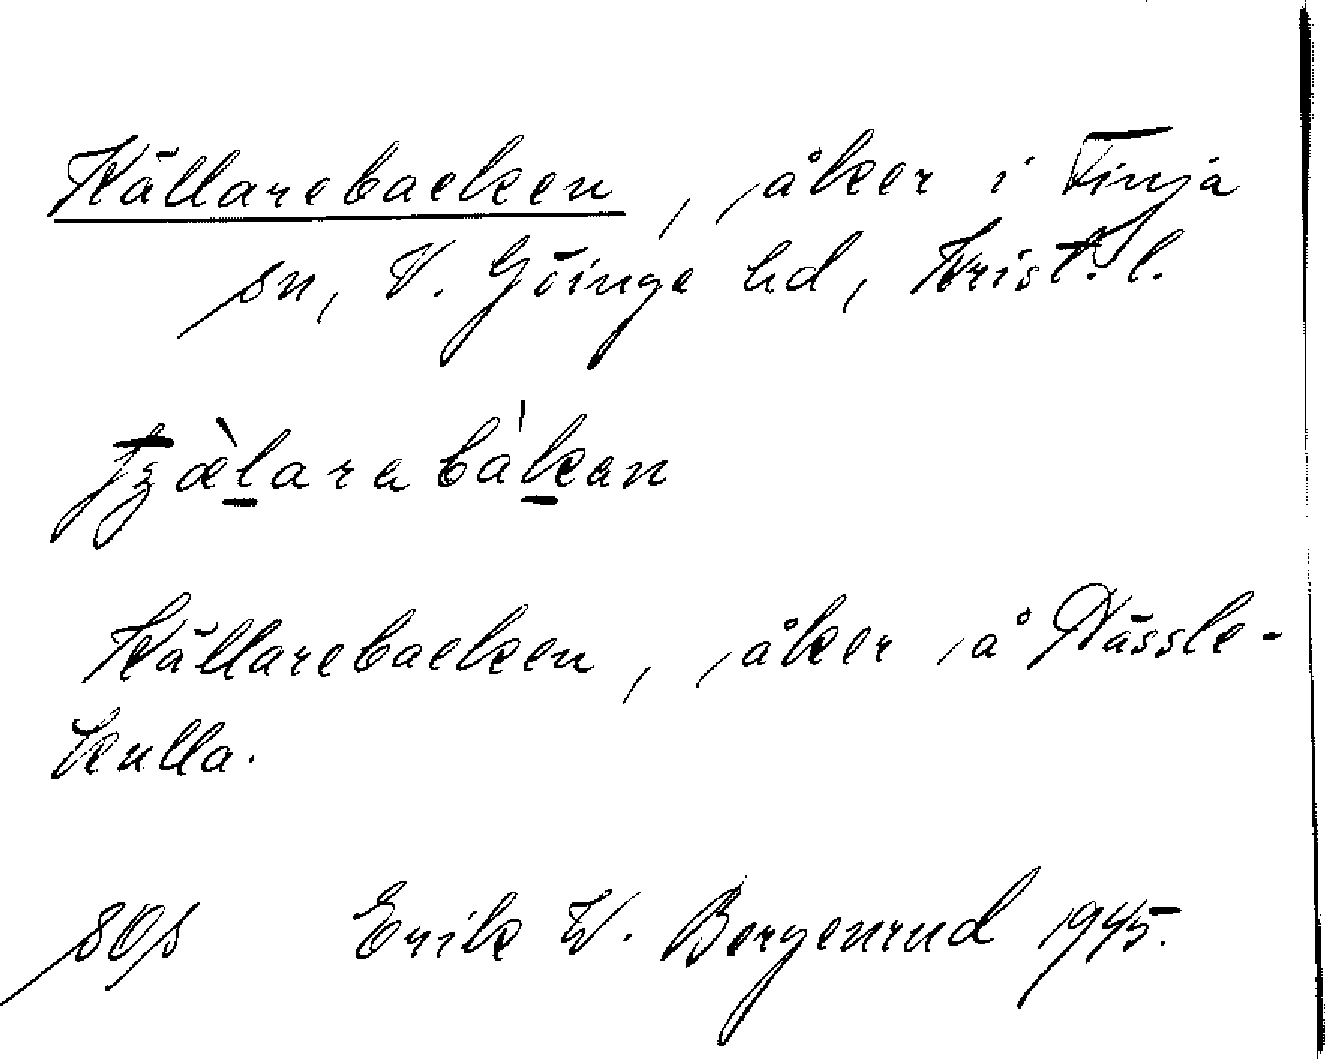 Källarebacken, åker i Finja
sn, V. Göinge hd, Krist. l.
Källarebacken, åker å Nässle-
kulla.
Erik W. Bergenrud 1945.